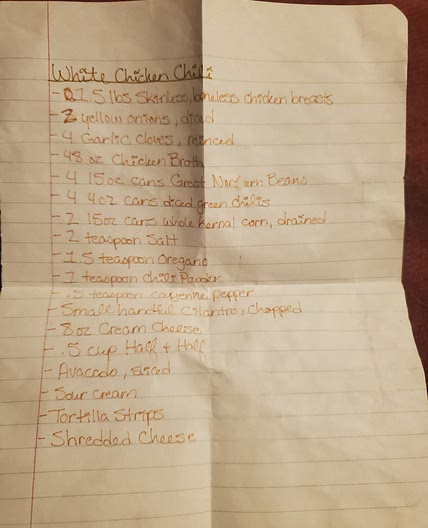 White Chicken Chili
- 1.5 lbs Skinless, boneless chicken breasts
- 2 yellow onions, diced
- 4 Garlic Cloves, minced
- 48 oz Chicken Broth
- 4 15oz cans Great Northern Beans
- 4 4oz cans diced green chilis
- 2 15oz cans whole kernal corn, drained
- 2 teaspoon Salt
- 1.5 teaspoon Oregano
- 1 teaspoon chili Powder
- .5 teaspoon cayenne pepper
- Small handful Cilantro, Chopped
- 8oz Cream Cheese
- .5 cup Half + Half
- Avacado, sliced
- Sour Cream
- Tortilla Strips
- Shredded Cheese